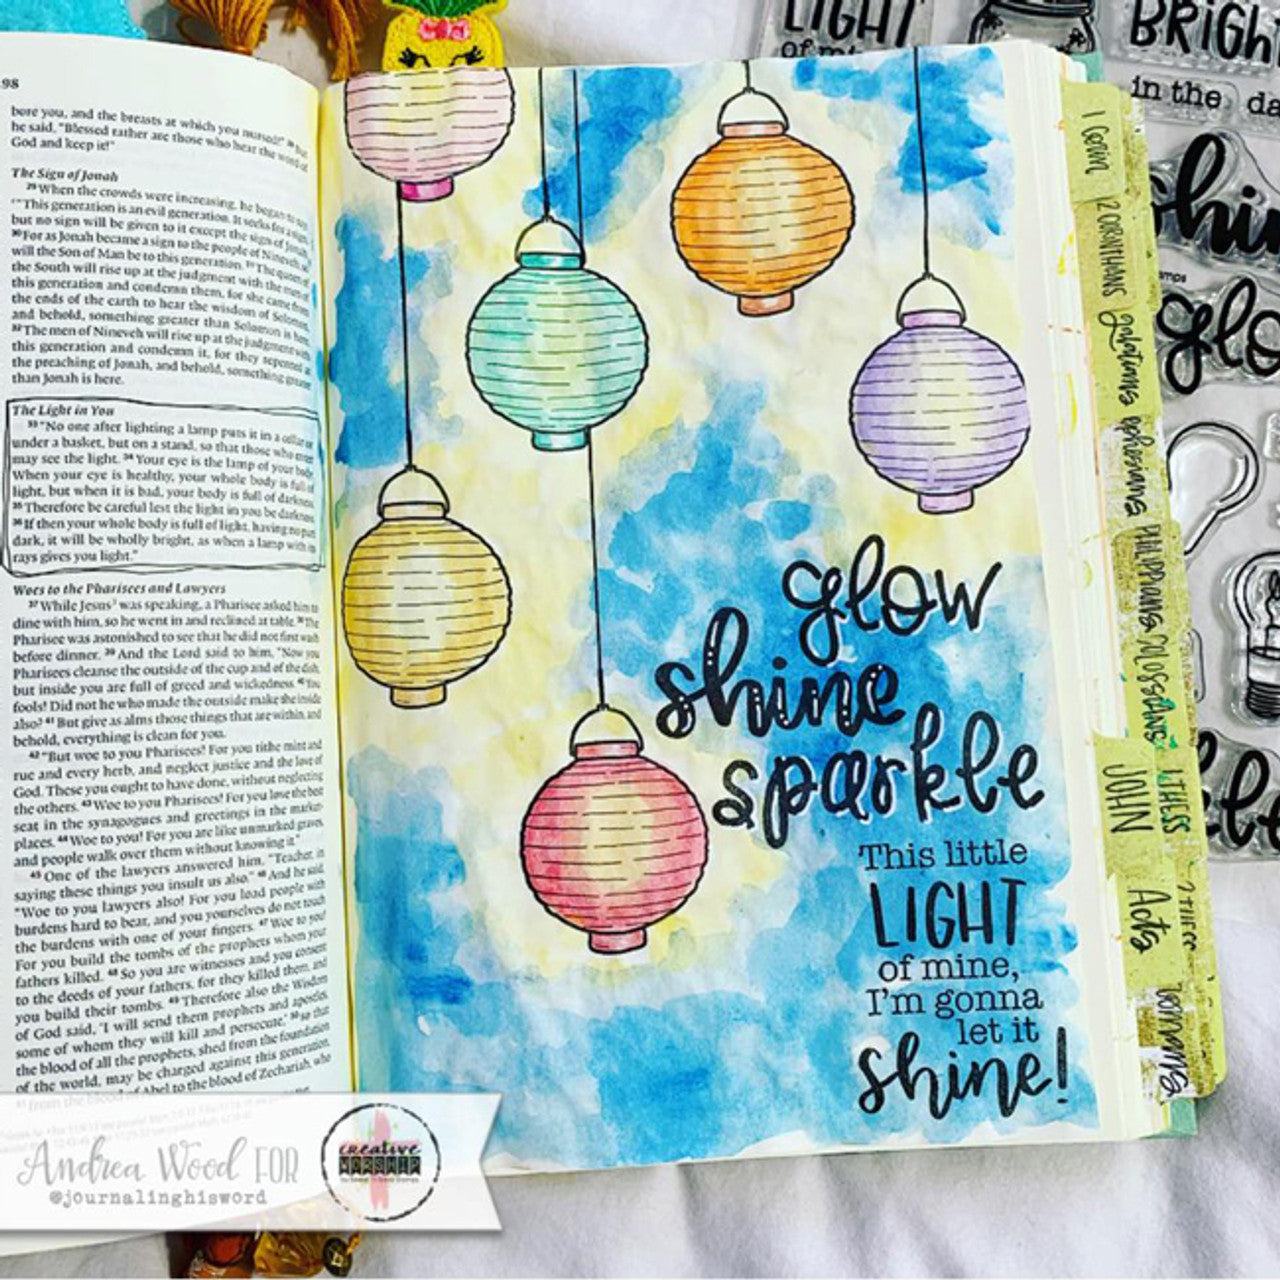 98
bore you, and the breasts at which you nursed!" 28 But
he said, "Blessed rather are those who hear the word of
God and keep it!"
The Sign of Jonah
29 When the crowds were increasing, he began to say,
"This generation is an evil generation. It seeks for a sign,
but no sign will be given to it except the sign of Jonah.
30 For as Jonah became a sign to the people of Nineveh, so
will the Son of Man be to this generation. 31 The queen of
the South will rise up at the judgment with the men of
this generation and condemn them, for she came from
the ends of the earth to hear the wisdom of Solomon,
and behold, something greater than Solomon is here.
32 The men of Nineveh will rise up at the judgment with
this generation and condemn it, for they repented at
the preaching of Jonah, and behold, something greater
than Jonah is here.
The Light in You
33 "No one after lighting a lamp puts it in a cellar or
under a basket, but on a stand, so that those who enter
may see the light. 34 Your eye is the lamp of your body.
When your eye is healthy, your whole body is full of
light, but when it is bad, your body is full of darkness.
35 Therefore be careful lest the light in you be darkness.
36 If then your whole body is full of light, having no part
dark, it will be wholly bright, as when a lamp with its
rays gives you light."
Woes to the Pharisees and Lawyers
37 While Jesus was speaking, a Pharisee asked him to
dine with him, so he went in and reclined at table. 38 The
Pharisee was astonished to see that he did not first wash
before dinner. 39 And the Lord said to him, "Now you
Pharisees cleanse the outside of the cup and of the dish,
but inside you are full of greed and wickedness. 40 You
fools! Did not he who made the outside make the inside
also? 41 But give as alms those things that are within, and
behold, everything is clean for you.
42 "But woe to you Pharisees! For you tithe mint and
rue and every herb, and neglect justice and the love of
God. These you ought to have done, without neglecting
the others. 43 Woe to you Pharisees! For you love the best
seat in the synagogues and greetings in the market-
places. 44 Woe to you! For you are like unmarked graves,
and people walk over them without knowing it."
45 One of the lawyers answered him, "Teacher, in
saying these things you insult us also." 46 And he said,
"Woe to you lawyers also! For you load people with
burdens hard to bear, and you yourselves do not touch
the burdens with one of your fingers. 47 Woe to you!
For you build the tombs of the prophets whom your
fathers killed. 48 So you are witnesses and you consent
to the deeds of your fathers, for they killed them, and
you build their tombs. 49 Therefore also the Wisdom
of God said, 'I will send them prophets and apostles,
some of whom they will kill and persecute,' 50 so that
the blood of all the prophets, shed from the foundation
of the world, may be charged against this generation,
51 from the blood of Abel to the blood of Zechariah, who
glow
shine
sparkle
This little
LIGHT
of mine,
I'm gonna
let it
shine!
1 Corin
2 CORINTHIANS
galatians
ephesians
PHILIPPIANS
COLOSSIANS
1 THESS
JOHN
Acts
romans
LIGHT
BRIGH
in the da
shin
glo
Andrea Wood FOR
@journalinghisword
creative
WORSHIP